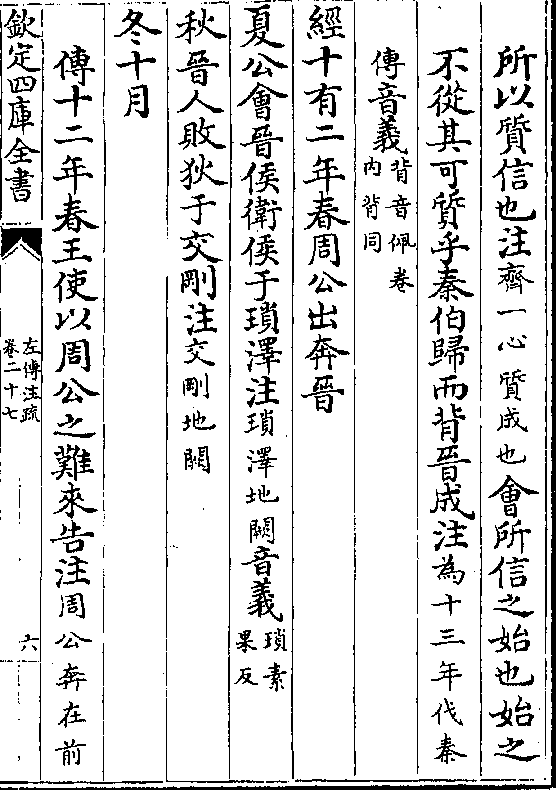 所以質信也注齊一心質成也會所信之始也始之
不從其可質乎秦伯歸而背晉成注為十三年伐秦
傳音義背音佩卷
內背同
經十有二年春周公出奔晉
夏公會晉侯衛侯于瑣澤注瑣澤地闕音義瑣素
果反
秋晉人敗狄于交剛注交剛地闕
冬十月
傳十二年春王使以周公之難來告注周公奔在前
欽定四庫全書
左傳注疏
卷二十七
六